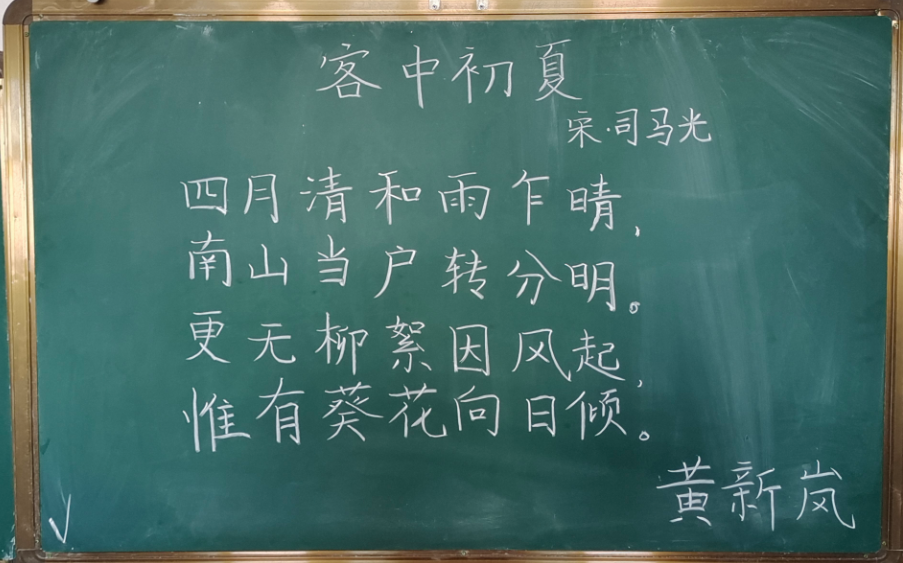 客中初夏
宋·司马光
四月清和雨乍晴，
南山当户转分明。
更无柳絮因风起，
惟有葵花向日倾。
黄新岚